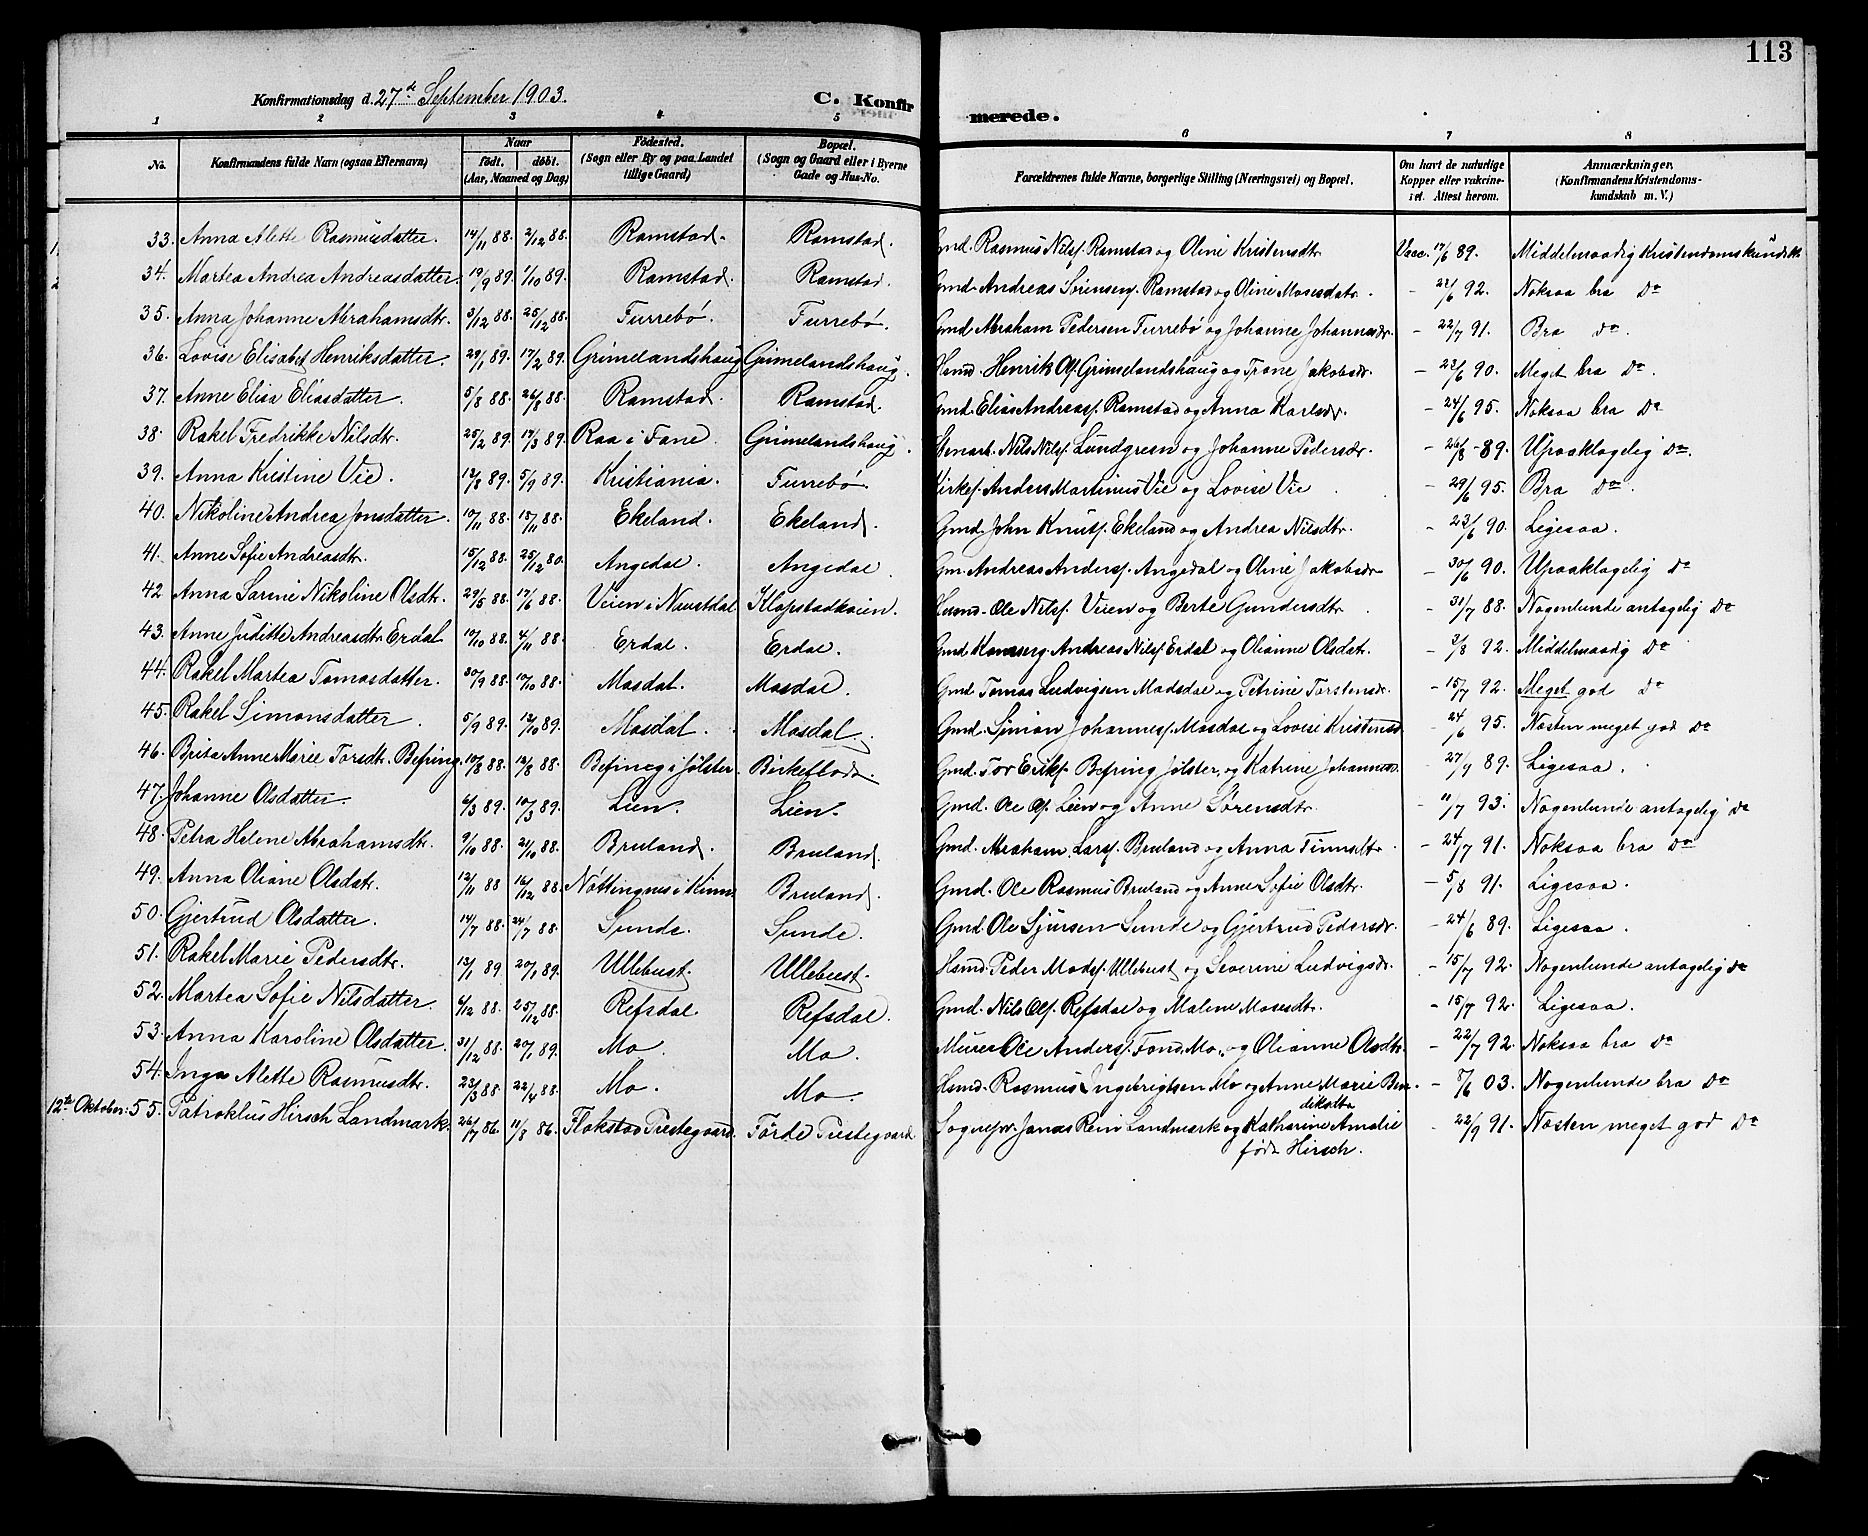 113
Konfirmationsdag d. 27de September 1903.
C. Konfirmerede.
1 2 3 4 5 6 7 8
No. Konfirmandens fulde Navn (ogsaa Efternavn) Naar født. døbt. (Aar, Maaned og Dag) Fødested. (Sogn eller By og paa Landet tillige Gaard) Bopæl. (Sogn og Gaard eller i Byerne Gade og Hus-No. Forældrenes fulde Navne, borgerlige Stilling (Næringsvei) og Bopæl. Om havt de naturlige Kopper eller vakcineret. Attest herom. Anmærkninger. (Konfirmandens Kristendomskundskab m. V.)
33. Anna Alette Rasmusdatter. 14/11 88. 2/12 88. Ramstad. Ramstad. Gmd. Rasmus Nilsf. Ramstad og Oline Kristensdtr. Vacc. 17/6 89. Middelmaadig Kristendomskundsk.
34. Martea Andrea Andreasdatter. 19/9 89. 1/10 89. Ramstad. Ramstad. Gmd. Andreas Sørensen, Ramstad og Oline Mosesdatr. - 22/6 92. Noksaa bra do
35. Anna Johanne Abrahamsdtr. 3/12 88. 25/12 88. Furrebø. Furrebø. Gmd Abraham Pedersen Furrebø og Johanne Johannesdr. - 22/7 91. Bra do.
36. Lovise Elisabet Henriksdatter. 29/1 89. 17/2 89. Grimelandshaug Grimelandshaug. Hsmd. Henrik Olsf. Grimelandshaug og Trone Jakobsdr. - 23/6 90. Meget bra do.
37. Anne Elisa Eliasdatter. 5/8 88. 26/8 88. Ramstad. Ramstad. Gmd. Elias Andreasf. Ramstad og Anna Karlsdr. - 24/6 95. Noksaa bra do
38. Rakel Fredrikke Nilsdtr. 25/2 89. 17/3 89. Raa i Fane. Grimelandshaug. Stenarb. Nils Nilsf. Lundgreen og Johanne Pedersdr. - 26/8 89. Upaaklagelig do.
39. Anna Kristine Vie. 12/8 89. 5/9 89. Kristiania. Furrebø. Kirkes. Anders Martinus Vie og Lovise Vie - 29/6 95. Bra do.
40. Nikoline Andrea Jonsdatter. 10/11 88. 18/11 88. Ekeland. Ekeland. Gmd. John Knutsf. Ekeland og Andrea Nilsdtr. - 23/6 90. Ligesaa.
41. Anne Sofie Andreasdtr. 15/12 88. 25/12 80. Angedal. Angedal. Gm. Andreas Andersf. Angedal og Oline Jakobsdr - 30/6 90. Upaaklagelig do
42 Anna Sarine Nikoline Olsdtr. 29/5 88. 17/6 88. Veien i Naustdal Klopstadkaien. Husmd. Ole Nilsf. Veien og Berte Gundersdtr. - 31/7 88. Nogenlunde antagelig do
43. Anne Juditte Andreasdtr Erdal 10/10 88. 4/11 88. Erdal. Erdal. Gmd Andreas Nilsf Erdal og Olianne Olsdatr. - 3/8 92. Middelmaadig do
44. Rakel Martea Tomasdatter. 30/9 88. 17/10 88. Masdal. Masdal. Gmd Tomas Ludvigsen Masdal og Petrine Torstensdr. - 15/7 92. Meget god do
45. Rakel Simonsdatter. 5/9 89. 12/10 89. Masdal. Masdal. Gmd. Simon Johannesf. Masdal og Lovise Kristensd. - 24/6 95. Nosten meget god do
46. Brita Anne Marie Torsdtr. Befring. 10/8 88. 12/8 88. Befring i Jølster. Birkeflot. Gmd. Tor Eriksf. Befring Jølster, og Katrine Johannesd. - 27/9 89. Ligesaa.
47. Johanne Olsdatter. 4/3 89. 10/3 89. Lien. Lien. Gmd. Ole Olsf. Lien og Anne Sørensdtr. - 11/7 93. Nogenlunde antagelig do
48. Petra Helene Abrahamsdtr. 9/10 88. 21/10 88. Bruland. Bruland. Gmd. Abraham Larsf. Bruland og Anna Finnsdtr. - 24/7 91. Noksaa bra do
49. Anna Oliane Olsdatr. 12/11 88 16/12 88. Nøttingnes i Kinn. Bruland. Gmd. Ole Rasmus Bruland og Anne Sofie Olsdtr. - 5/8 91. Ligesaa.
50. Gjertrud Olsdatter. 14/7 88. 24/7 88. Sunde. Sunde. Gmd. Ole Sjursen Sunde og Gjertrud Pedersdr. - 24/6 89. Ligesaa.
51. Rakel Marie Pedersdtr. 13/1 89. 20/1 89. Ullebust. Ullebust. Hsmd. Peder Madsf. Ullebust og Severine Ludvigsdr. - 15/7 92. Nogenlunde antagelig do
52. Martea Sofie Nilsdatter. 4/12 88. 25/12 88. Refsdal. Refsdal. Gmd. Nils Olsf. Refsdal og Malene Mosesdtr. - 15/7 92. Ligesaa.
53. Anna Karoline Olsdatter. 31/12 88. 20/1 89. Mo. Mo. Murer Ole Andersf. Fond Mo. og Olianne Olsdtr. - 22/7 92. Noksaa bra do
54. Inga Alette Rasmusdtr. 23/3 88. 22/4 88. Mo. Mo. Hsmd. Rasmus Ingebrigtsen Mo og Anne Marie Bendiksdtr. - 8/6 03. Nogenlunde bra do
12te Oktober. 55. Patroklus Hirsch Landmark. 26/7 86. 11/8 86. Flakstad Prestegaard. Førde Prestegaard. Sognepr. Jonas Rein Landmark og Katharine Amalie - 22/9 91. Nosten meget god do
født Hirsch.